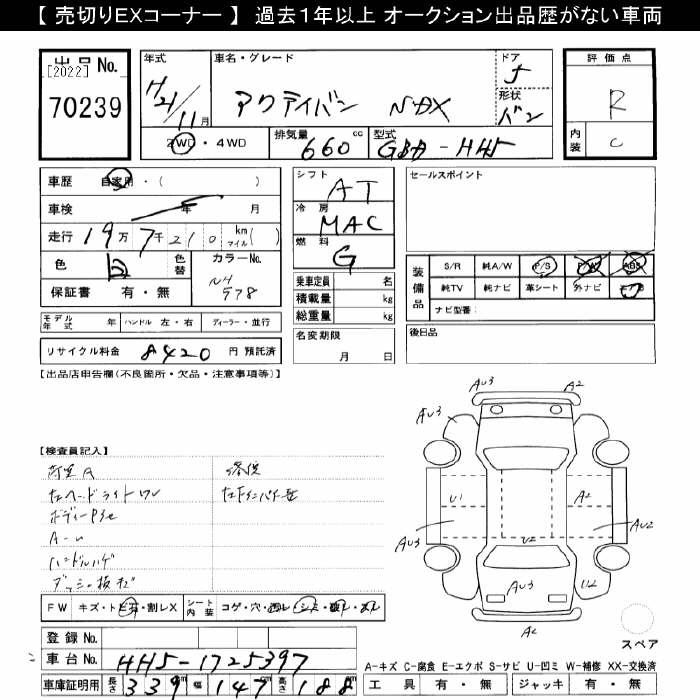 【 売切りEXコーナー 】 過去1年以上 オークション出品歴がない車両
出品 No.
[2022]
70239
年式
H21/11月
車名・グレード
アクティバン NBX
ドア
形状
バン
2WD・4WD
排気量 660 cc
型式 GBD-HH5
評価点
R
内装
C
車歴 自家用・( )
車検 年 月
走行 19万7千210 km マイル( )
色 白 色替
カラーNo.
NH578
保証書 有・無
モデル年式 年 ハンドル 左・右 ディーラー・並行
リサイクル料金 8420 円 預託済
シフト
AT
冷房
MAC
燃料
G
乗車定員 名
積載量 kg
総重量 kg
名変期限
月 日
セールスポイント
装備品
S/R 純A/W P/S P/W ABS
純TV 純ナビ 革シート 外ナビ エアB
ナビ型番:
後日品
【出品店申告欄(不良箇所・欠品・注意事項等)】
【検査員記入】
荷室A 修復
左ヘッドライトワレ
A-u
ハンドルハゲ
FW キズ・トビ石・割レX シート内装 コゲ・穴・切レ・シミ・
AU3
A2
AU3
U1
A2
AU3
AU2
U2
AU3
U2
A2
スペア
登録 No.
車台 No. HH5-1725397
車庫証明用 長さ 339 m 幅 147 m 高さ 188 m
A-キズ C-腐食 E-エクボ S-サビ U-凹ミ W-補修 XX-交換済
工具 有・無 ジャッキ 有・無